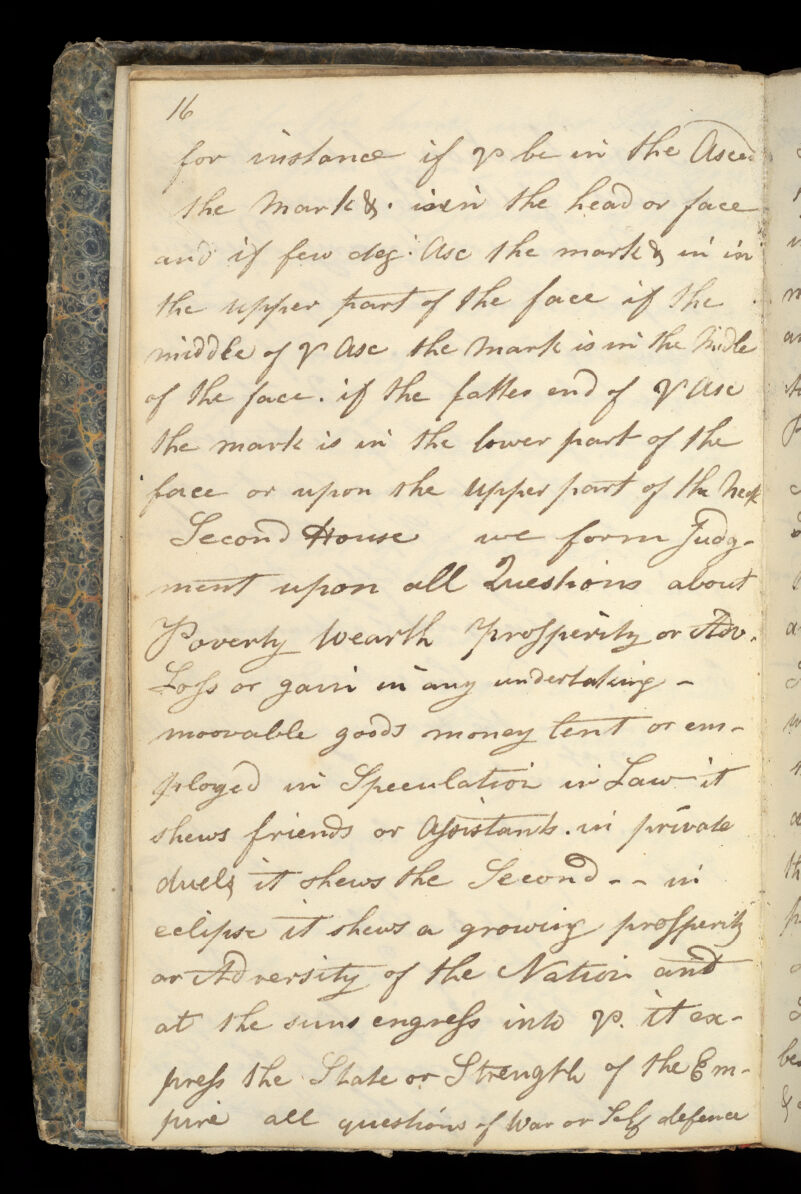 16
for instance if ♈ be in the Ascen
the Mark &. is in the head or face
and if few deg: Asc the mark & in in
the upper part of the face if the
middle of ♈ Asc the Mark is in the Midle
of the face. if the latter end of ♈ Asc
the mark is in the lower part of the
face or upon the upper part of the Neck
Second House we form Judg-
ment upon all Questions about
Poverty Wearth Prosperity or Adv.
Loss or gain in any undertaking -
moovable goods money lent or em-
ployed in Speculation in Law it
shews friends or Assistants. in private
duels it shews the Second - - in
eclipse it shews a growing prosperity
or Adversity of the Nation and
at the suns engress into ♈. it ex-
press the State or Strength of the Em-
pire all questions of War or Self defence